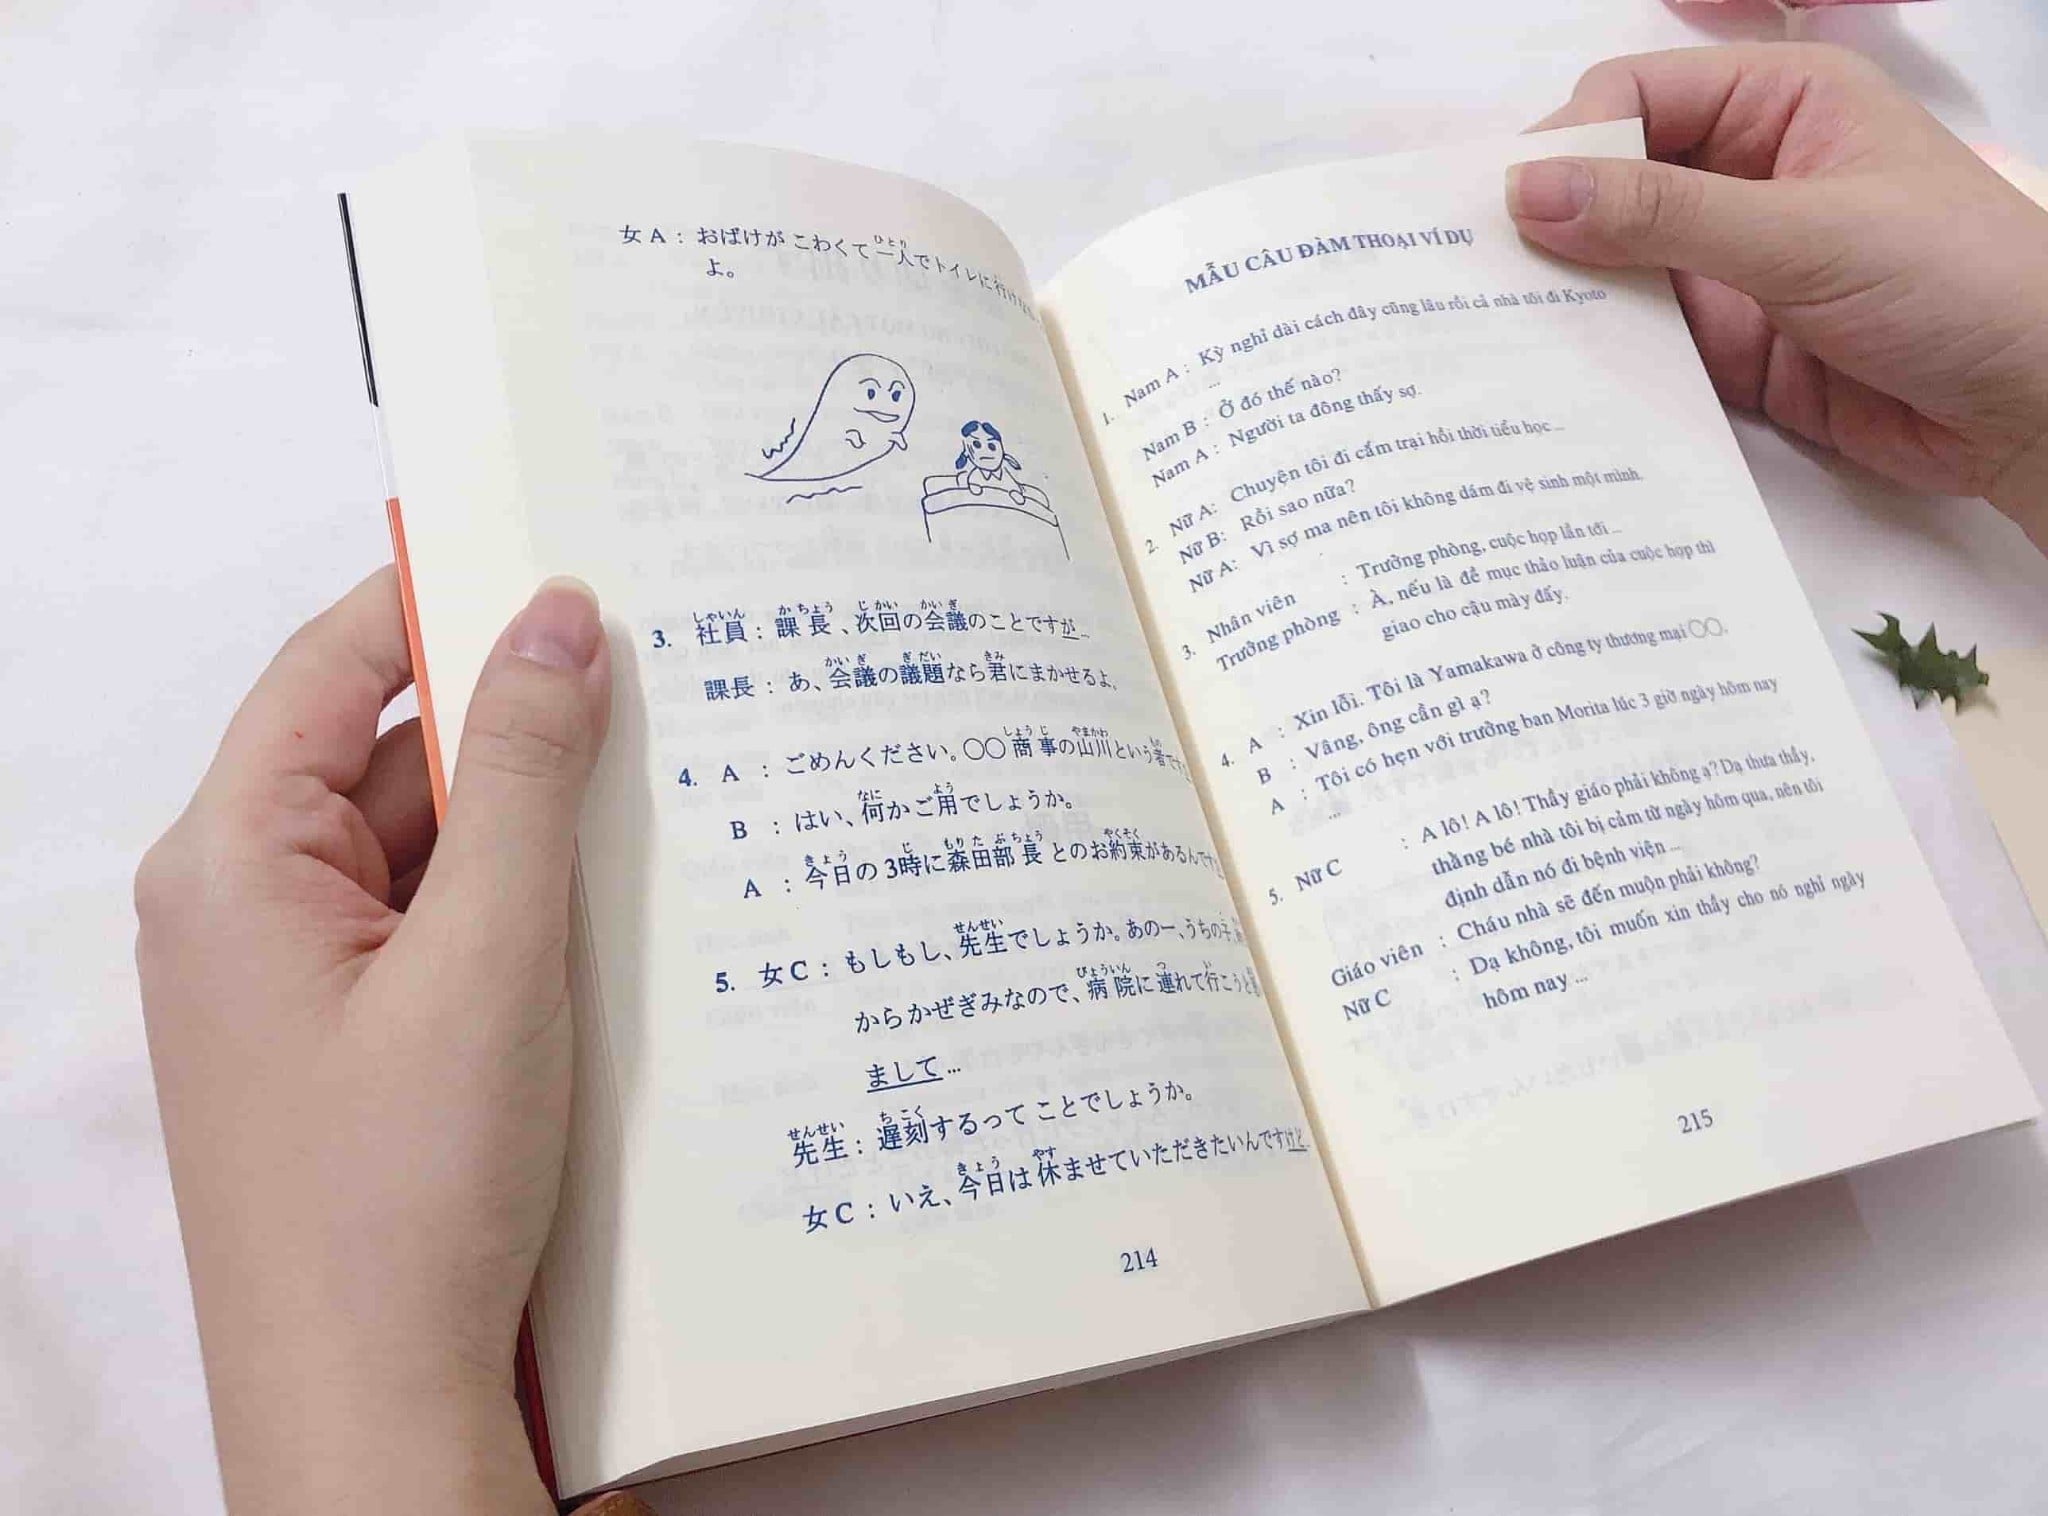 女A : おばけが こわくて一人でトイレに行けな
よ。
3. 社員 : 課長、次回の会議のことですが…
課長 : あ、会議の議題なら君にまかせるよ。
4. A : ごめんください。○○商事の山川という者です
B : はい、何かご用でしょうか。
A : 今日の3時に森田部長とのお約束があるんです
5. 女C : もしもし、先生でしょうか。あのー、うちの子、
からかぜぎみなので、病院に連れて行こうと
まして…
先生 : 遅刻するって ことでしょうか。
女C : いえ、今日は休ませていただきたいんですけど…
214
MẪU CÂU ĐÀM THOẠI VÍ DỤ
1. Nam A : Kỳ nghỉ dài cách đây cũng lâu rồi cả nhà tôi đi Kyoto
...
Nam B : Ở đó thế nào?
Nam A : Người ta đông thấy sợ.
2. Nữ A: Chuyện tôi đi cắm trại hồi thời tiểu học ...
Nữ B: Rồi sao nữa?
Nữ A: Vì sợ ma nên tôi không dám đi vệ sinh một mình.
3. Nhân viên : Trưởng phòng, cuộc họp lần tới ...
Trưởng phòng : À, nếu là đề mục thảo luận của cuộc họp thì
giao cho cậu mày đấy.
4. A : Xin lỗi. Tôi là Yamakawa ở công ty thương mại ○○.
B : Vâng, ông cần gì ạ?
A : Tôi có hẹn với trưởng ban Morita lúc 3 giờ ngày hôm nay
...
5. Nữ C : A lô! A lô! Thầy giáo phải không ạ? Dạ thưa thầy,
thằng bé nhà tôi bị cảm từ ngày hôm qua, nên tôi
định dẫn nó đi bệnh viện ...
Giáo viên : Cháu nhà sẽ đến muộn phải không?
Nữ C : Dạ không, tôi muốn xin thầy cho nó nghỉ ngày
hôm nay ...
215